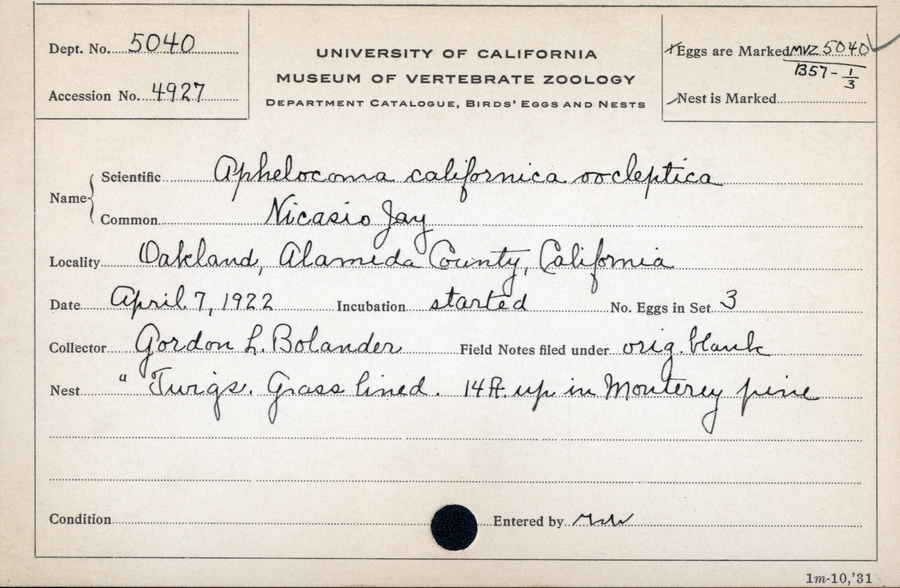 Dept. No. 5040
Accession No. 4927
UNIVERSITY OF CALIFORNIA
MUSEUM OF VERTEBRATE ZOOLOGY
DEPARTMENT CATALOGUE, BIRDS' EGGS AND NESTS
Eggs are Marked MVZ 5040
B57-1/3
Nest is Marked
Name
Scientific Aphelocoma californica oocleptica
Common Nicasio Jay
Locality Oakland, Alameda County, California
Date April 7, 1922 Incubation started No. Eggs in Set 3
Collector Gordon L. Bolander Field Notes filed under orig. blank
Nest " Twigs. Grass lined. 14 ft. up in Monterey pine
Condition Entered by
1m-10,'31